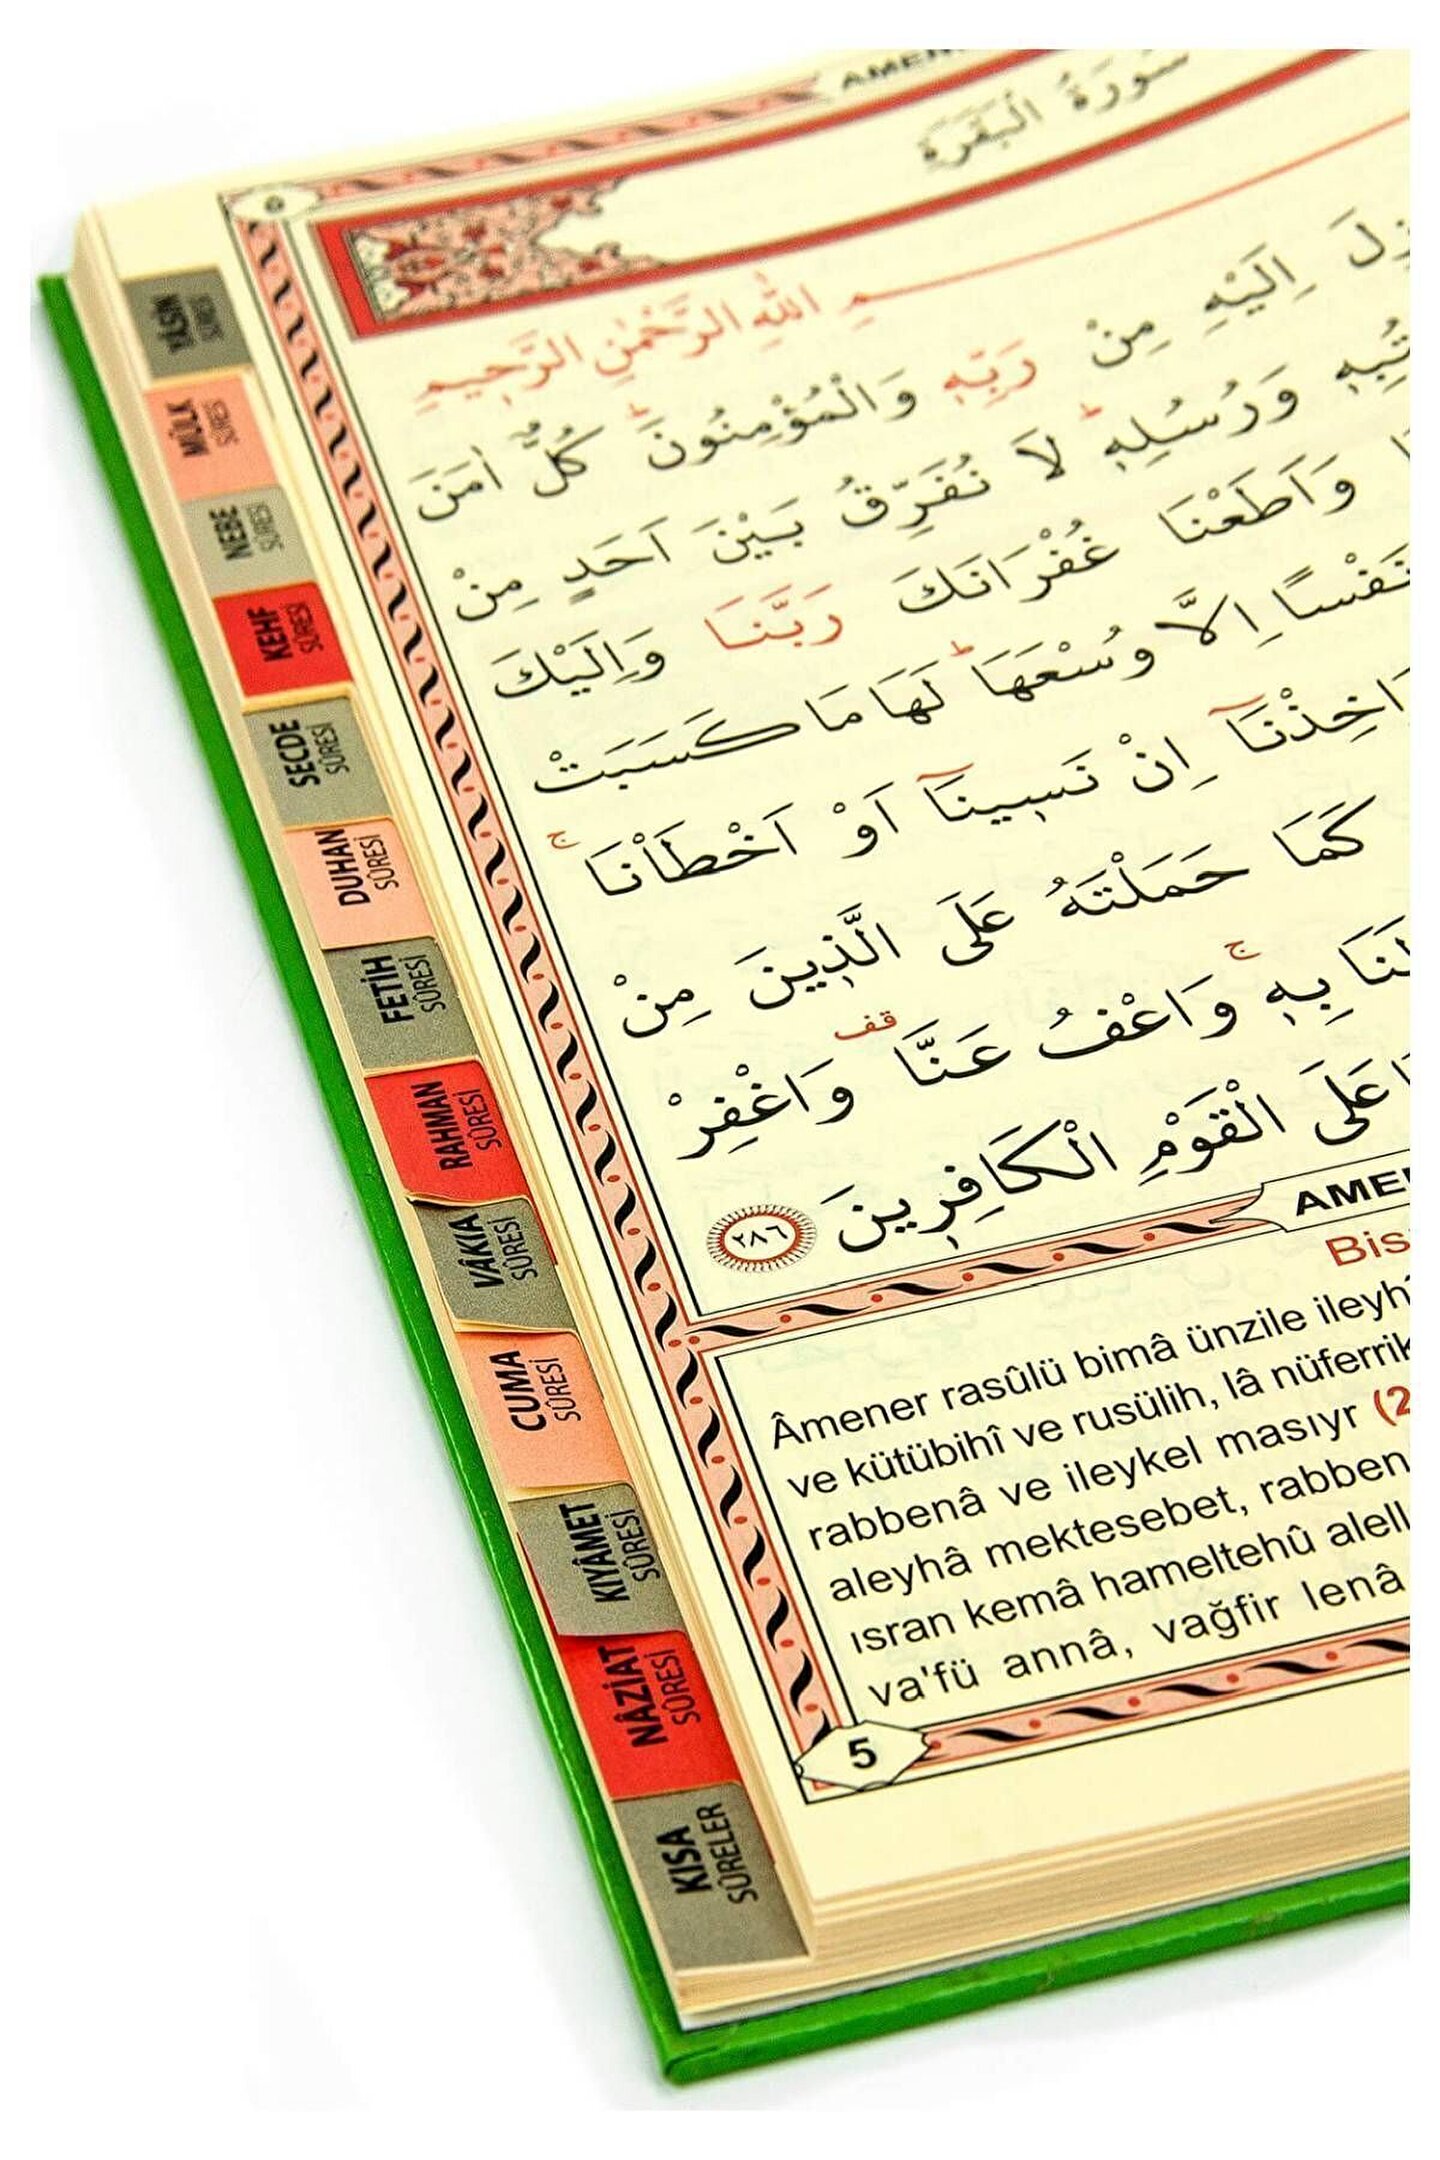 سُورَةُ الْبَقَرَةِ
٥
اللّٰهِ الرَّحْمٰنِ الرَّحٖيمِ
اِلَيْهِ مِنْ رَبِّهٖ وَالْمُؤْمِنُونَؕ كُلٌّ اٰمَنَ
وَرُسُلِهٖؕ لَا نُفَرِّقُ بَيْنَ اَحَدٍ مِنْ
وَاَطَعْنَا غُفْرَانَكَ رَبَّنَا وَاِلَيْكَ
نَفْسًا اِلَّا وُسْعَهَاؕ لَهَا مَا كَسَبَتْ
اِنْ نَسٖينَٓا اَوْ اَخْطَاْنَاۚ
كَمَا حَمَلْتَهُ عَلَى الَّذٖينَ مِنْ
بِهٖۚ وَاعْفُ عَنَّا قف وَاغْفِرْ
عَلَى الْقَوْمِ الْكَافِرٖينَ ٢٨٦
Âmener rasûlü bimâ ünzile
ve kütübihî ve rusülih, lâ
rabbenâ ve ileykel masıyr
aleyhâ mektesebet,
ısran kemâ hameltehû
va'fü annâ, vağfir lenâ
5
YÂSİN
SÛRESİ
MÜLK
SÛRESİ
NEBE
SÛRESİ
KEHF
SÛRESİ
SECDE
SÛRESİ
DUHAN
SÛRESİ
FETİH
SÛRESİ
RAHMAN
SÛRESİ
VÂKIA
SÛRESİ
CUMA
SÛRESİ
KIYÂMET
SÛRESİ
NÂZİAT
SÛRESİ
KISA
SÛRELER